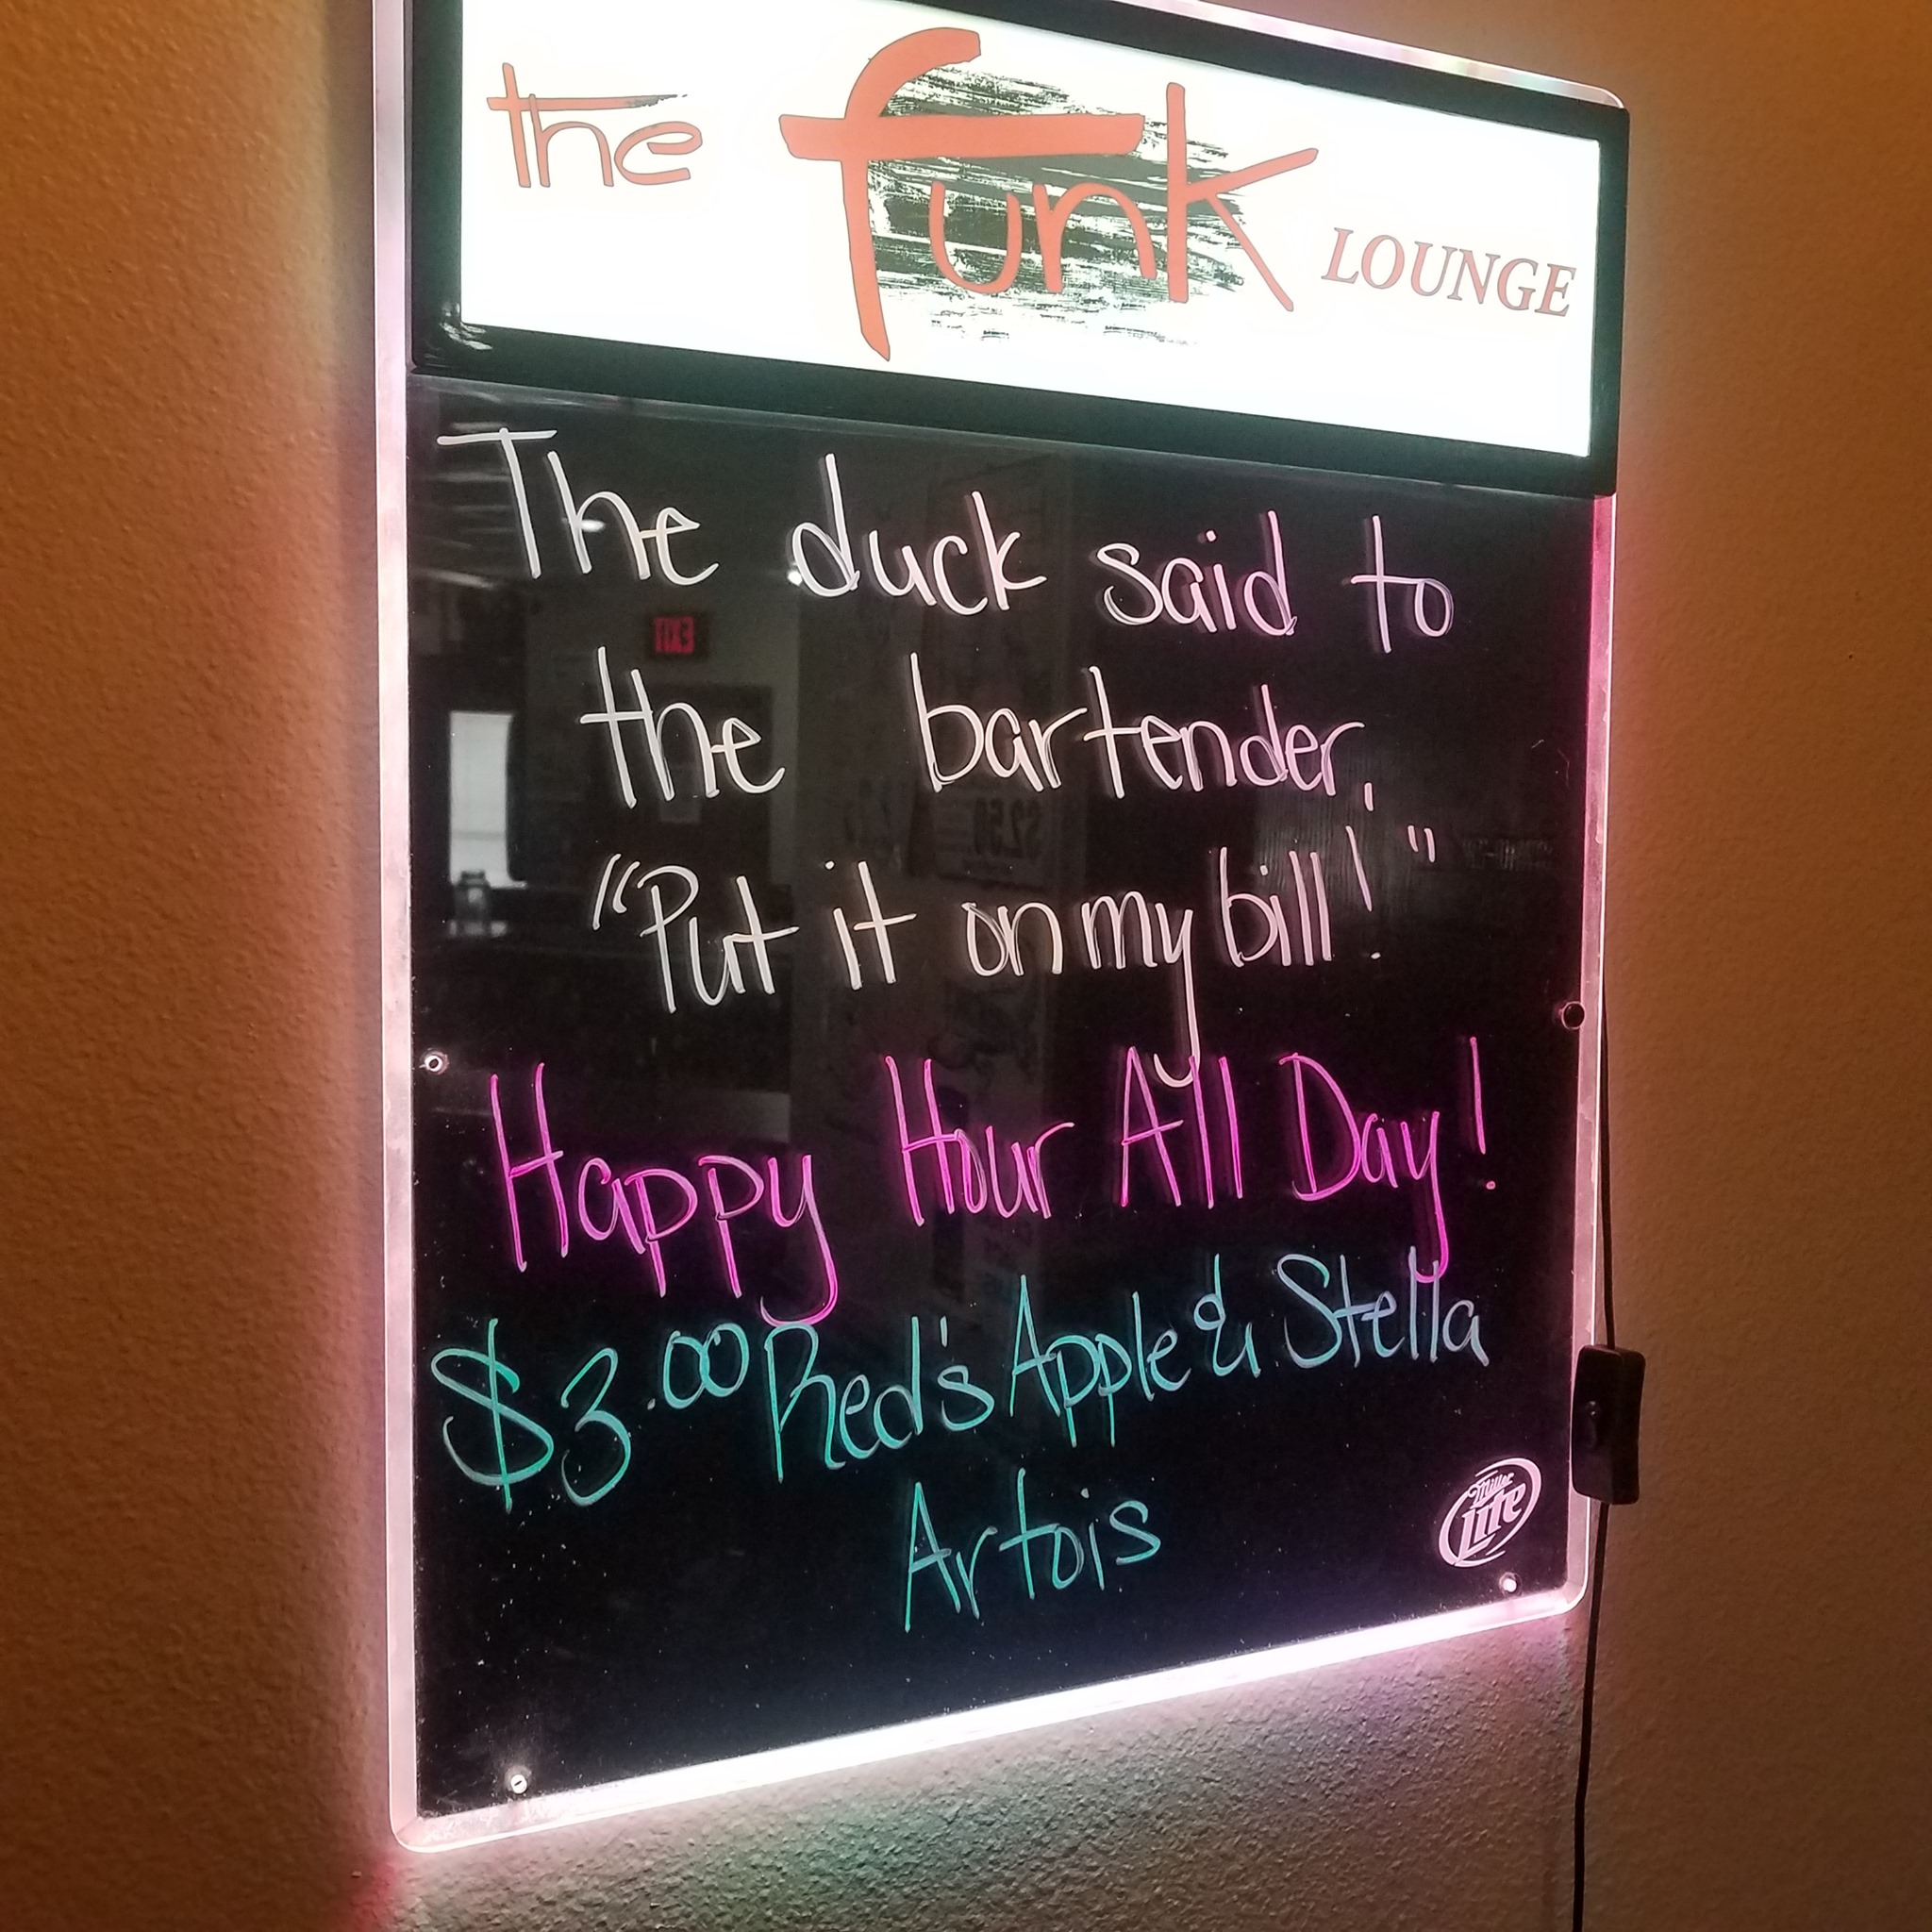 the funk LOUNGE
The duck said to
the bartender,
"Put it on my bill!"
Happy Hour All Day!
$3.00 Red's Apple & Stella
Artois
Miller
Lite
EXIT
$2.50